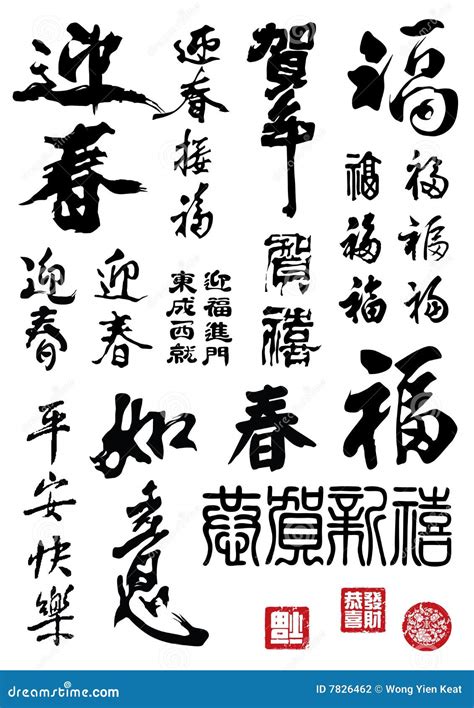 迎春
迎春接福
賀年
福
福福福
福福福
迎春
迎春
迎福進門
東成西就
賀禧
春
福
平安快樂
如意
恭賀新禧
福
恭喜
發財
dreamstime.com
ID 7826462 © Wong Yien Keat